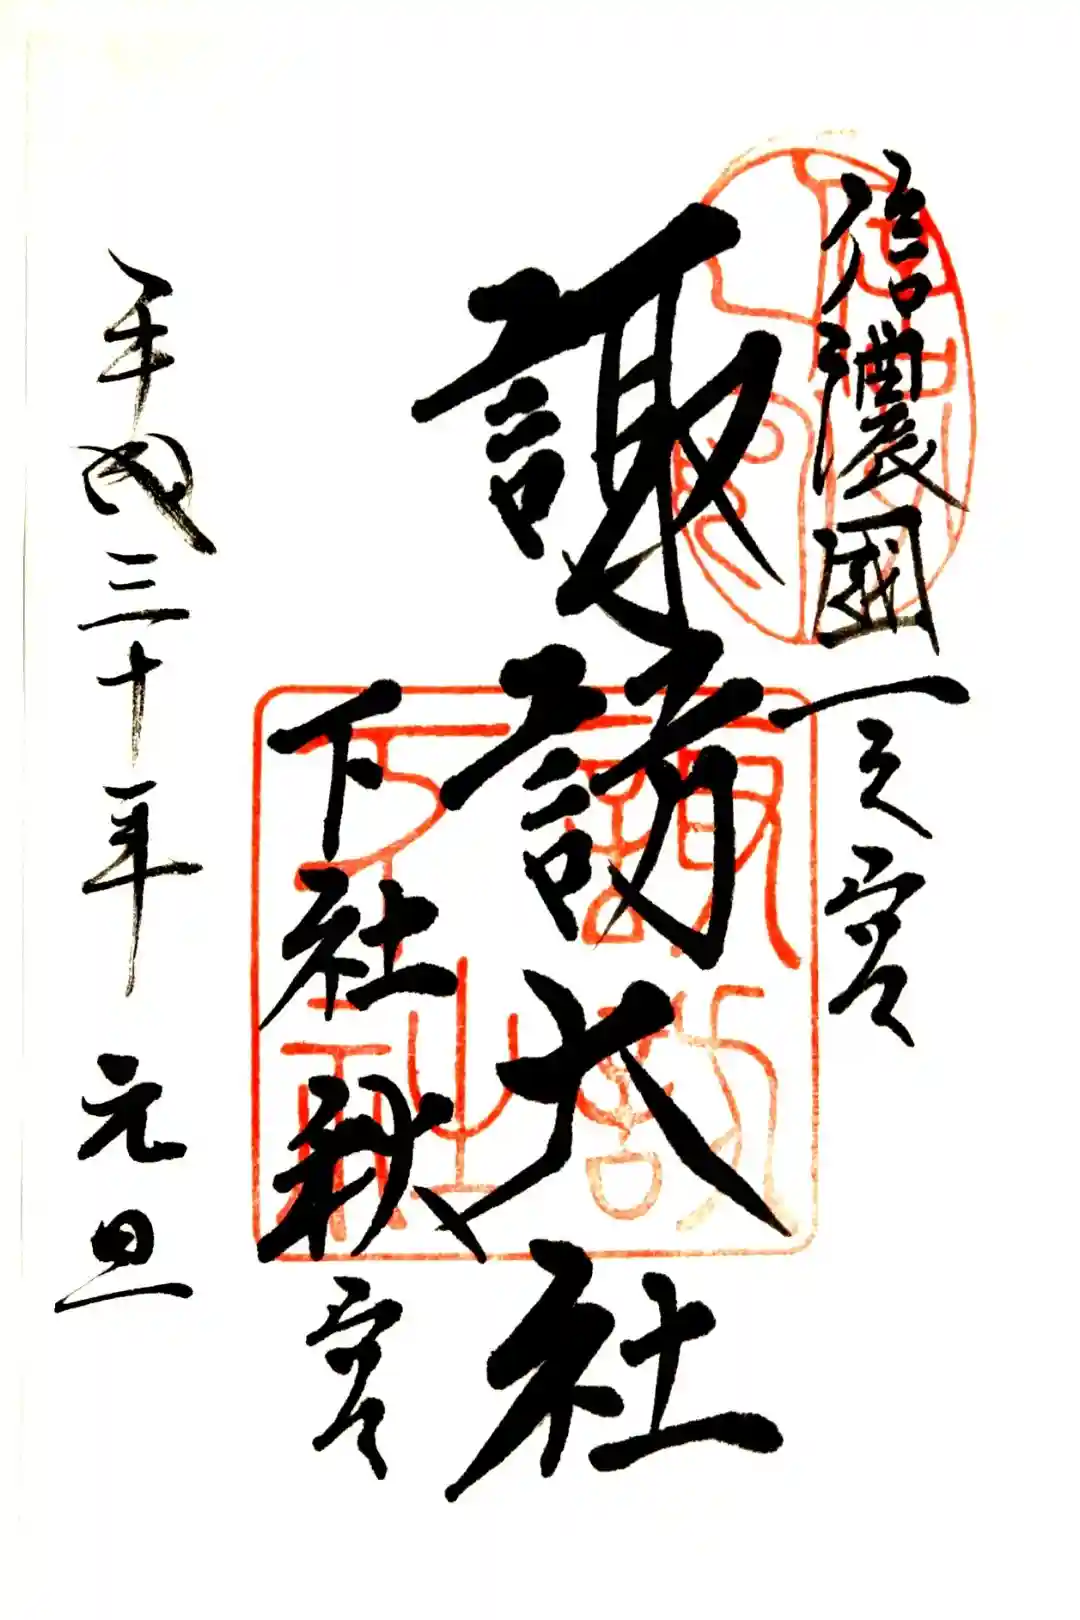 信濃國一之宮
諏訪大社
下社秋宮
平成三十年 元旦
諏訪
下社